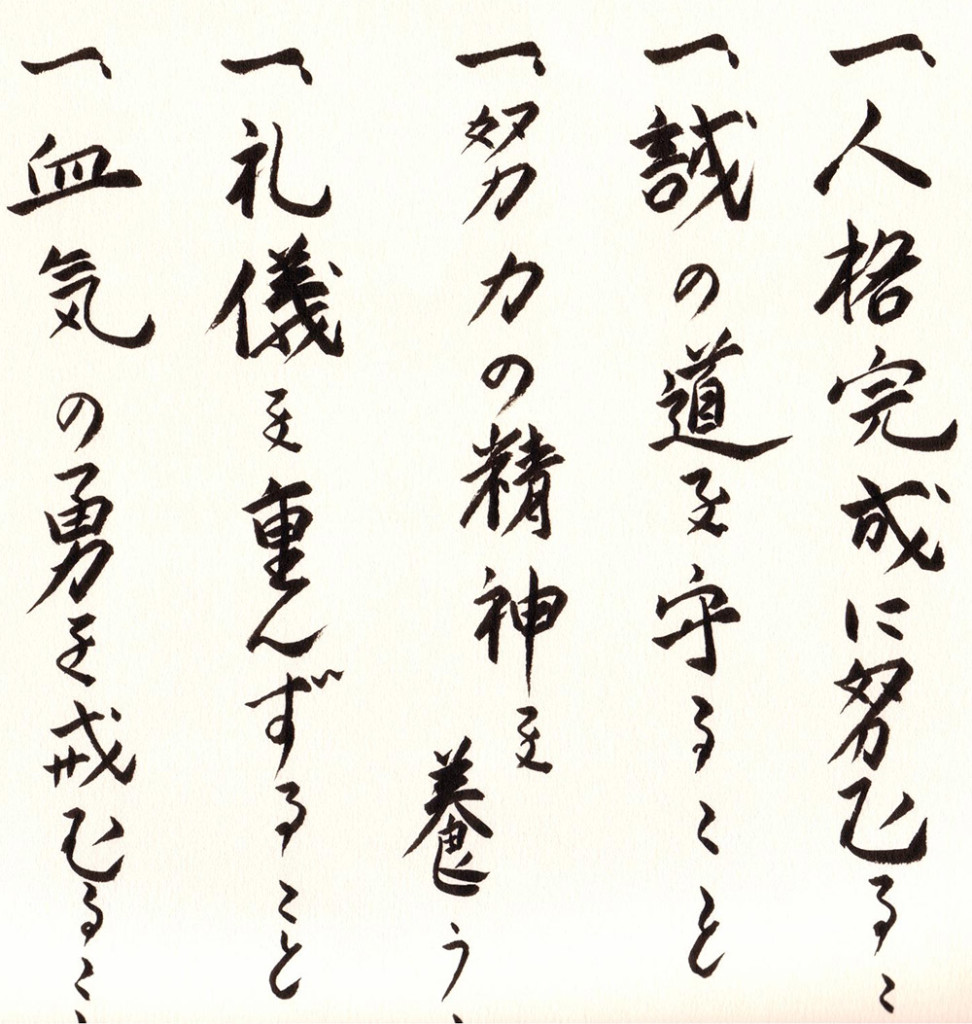 一、人格完成に努むるこ
一、誠の道を守ること
一、努力の精神を養う
一、礼儀を重んずること
一、血気の勇を戒むるこ